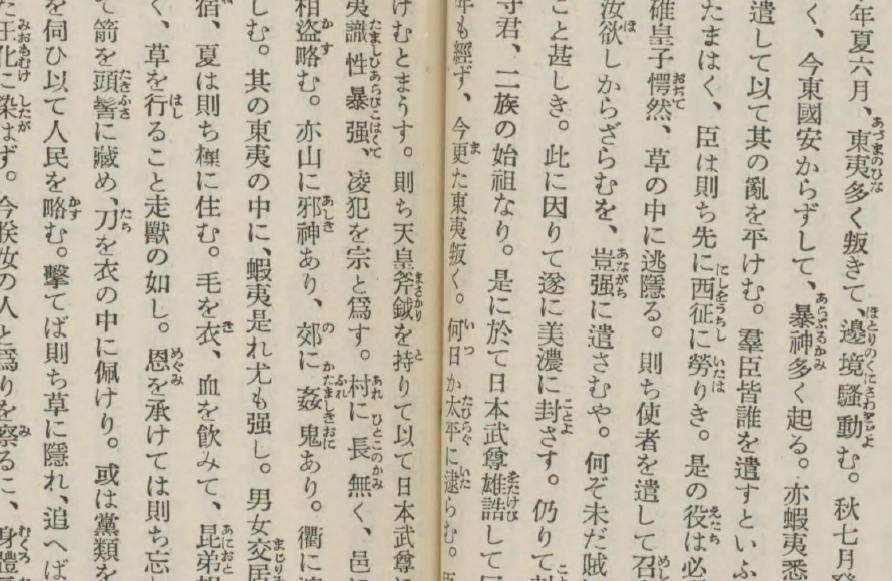 年夏六月、東夷多く叛きて、邊境騷動む。秋七月
く、今東國安からずして、暴神多く起る。亦蝦夷悉
遣して以て其の亂を平けむ。羣臣皆誰を遣すといふ
たまはく、臣は則ち先に西征に勞りき。是の役は必
碓皇子愕然、草の中に逃隱る。則ち使者を遣して召
汝欲しからざらむを、豈强に遣さむや。何ぞ未だ賊
こと甚しき。此に因りて遂に美濃に封さす。仍りて
守君、二族の始祖なり。是に於て日本武尊雄誥して
年も經ず、今更た東夷叛く。何日か太平に逮らむ。
けむとまうす。則ち天皇斧鉞を持りて以て日本武尊
夷識性暴强、凌犯を宗と爲す。村に長無く、邑
相盜略む。亦山に邪神あり、郊に姦鬼あり。衢に
しむ。其の東夷の中に、蝦夷是れ尤も强し。男女交居
宿、夏は則ち樔に住む。毛を衣、血を飮みて、昆弟
く、草を行ること走獸の如し。恩を承けては則ち忘
て箭を頭髻に藏め、刀を衣の中に佩けり。或は黨類を
を伺ひ以て人民を略む。擊てば則ち草に隱れ、追へば
た王化に染はず。今朕汝の人と爲りを察るに、身體